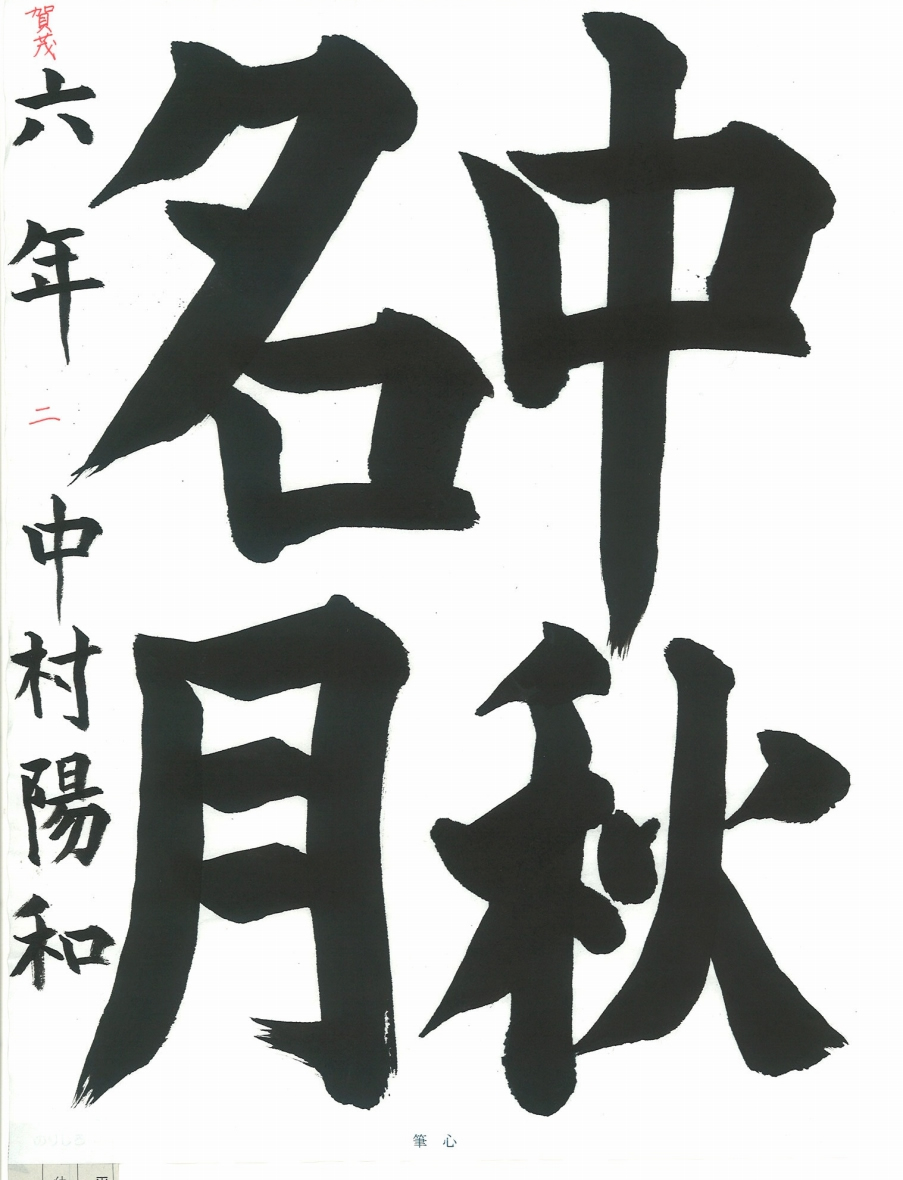 中秋
名月
賀茂
六年二中村陽和
心筆